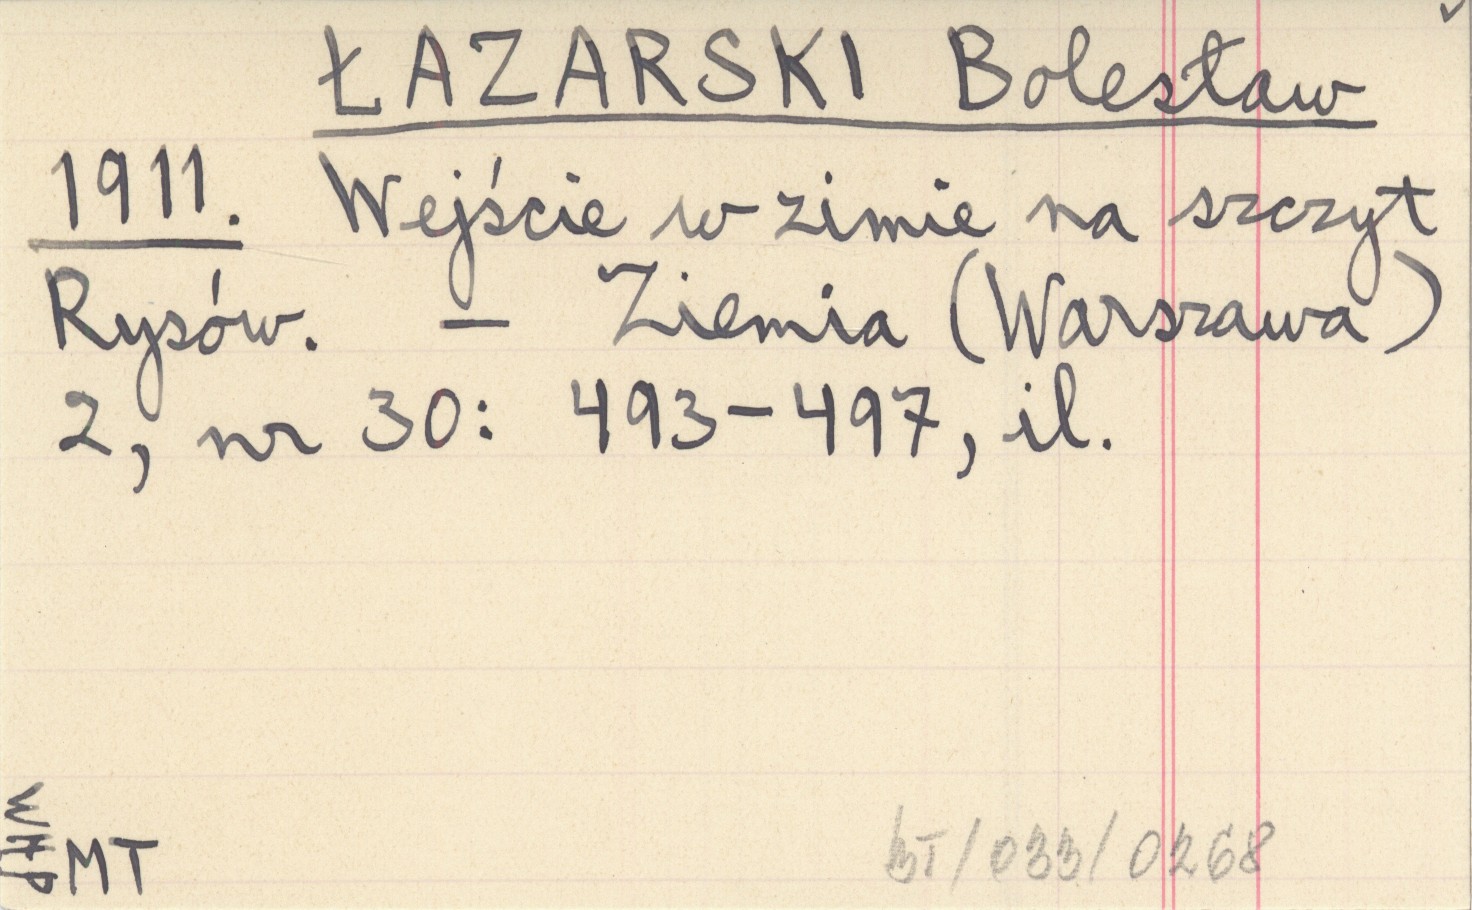 ŁAZARSKI Bolesław
1911. Wejście w zimie na szczyt
Rysów. — Ziemia (Warszawa)
2, nr 30: 493-497, il.
MT
BT/033/0268